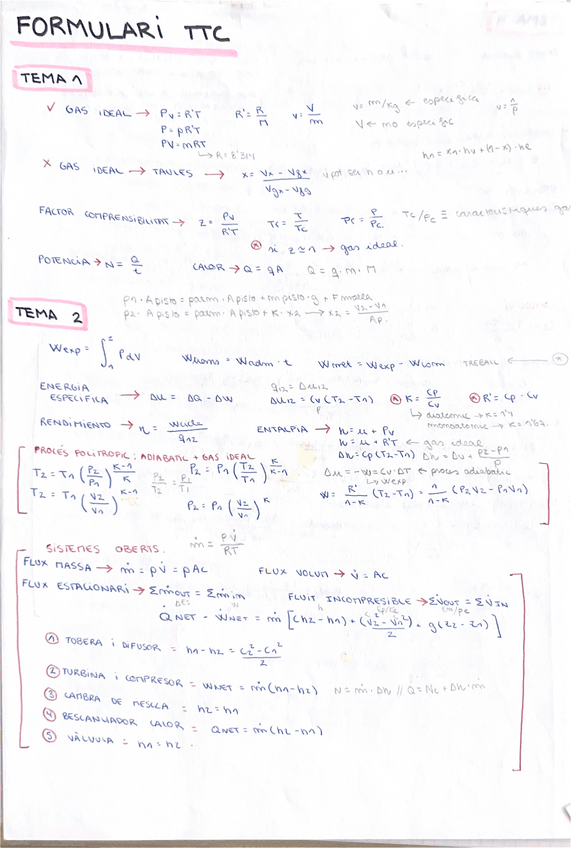 FORMULARI TTC
TEMA 1
✓ GAS IDEAL → Pv = R'T R' = R/M v = V/m v = m/kg ← especifica v = 1/ρ
P = ρR'T V ← no especific
PV = mRT
↳ R = 8'314 hn = xn·hv + (1-x)·he
× GAS IDEAL → TAULES → x = (Vx - Vfx)/(Vgx - Vfg) v pot ser h o u...
FACTOR COMPRENSIBILITAT → Z = Pv/R'T Tc = T/Tc Pc = P/Pc Tc/Pc ≡ característiques gas
⊗ si z ≃ 1 → gas ideal.
POTENCIA → N = Q/t CALOR → Q = qA Q = q·m·M
P1·Apisto = patm·Apisto + mpisto·g + Fmolla
P2·Apisto = patm·Apisto + K·x2 → x2 = (V2-V1)/Ap.
TEMA 2
Wexp = ∫₁² PdV Wtrans = Wadm·t Wnet = Wexp - Wcom TREBALL ← ⊗
ENERGIA ESPECIFICA → Δu = ΔQ - ΔW q12 = Δu12 Δu12 = Cv(T2-T1) ⊗ K = Cp/Cv ⊗ R' = Cp - Cv
↳ diatomic → K = 1'4
monoatomic → K = 1'67.
RENDIMIENTO → η = wcicle/q12 ENTALPIA → h = u + Pv
h = u + R'T ← gas ideal
PROCÉS POLITROPIC: ADIABATIC + GAS IDEAL Δh = Cp(T2-T1) Δh = Δu + (P2-P1)/ρ
T2 = T1 (P2/P1)^((K-1)/K) P2/T2 = P1/T1 P2 = P1 (T2/T1)^(K/(K-1)) Δu = -w = Cv·ΔT ← procés adiabatic
↳ wexp
T2 = T1 (V2/V1)^(K-1) P2 = P1 (V1/V2)^K W = R'/(1-K) (T2-T1) = 1/(1-K) (P2V2 - P1V1)
SISTEMES OBERTS. ṁ = PV̇/RT
FLUX MASSA → ṁ = ρV̇ = ρAC FLUX VOLUM → V̇ = AC
FLUX ESTACIONARI → Σṁout = Σṁin FLUIT INCOMPRESIBLE → ΣV̇OUT = ΣV̇IN
Q̇NET - ẆNET = ṁ [(h2-h1) + (V2²-V1²)/2 + g(z2-z1)]
① TOBERA i DIFUSOR = h1-h2 = (C2²-C1²)/2
② TURBINA i COMPRESOR = WNET = ṁ(h1-h2) N = ṁ·Δh // Q̇ = Nc + Δh·ṁ
③ CAMBRA DE MESCLA = h2 = h1
④ BESCANVIADOR CALOR = QNET = ṁ(h2-h1)
⑤ VÀLVULA = h1 = h2.